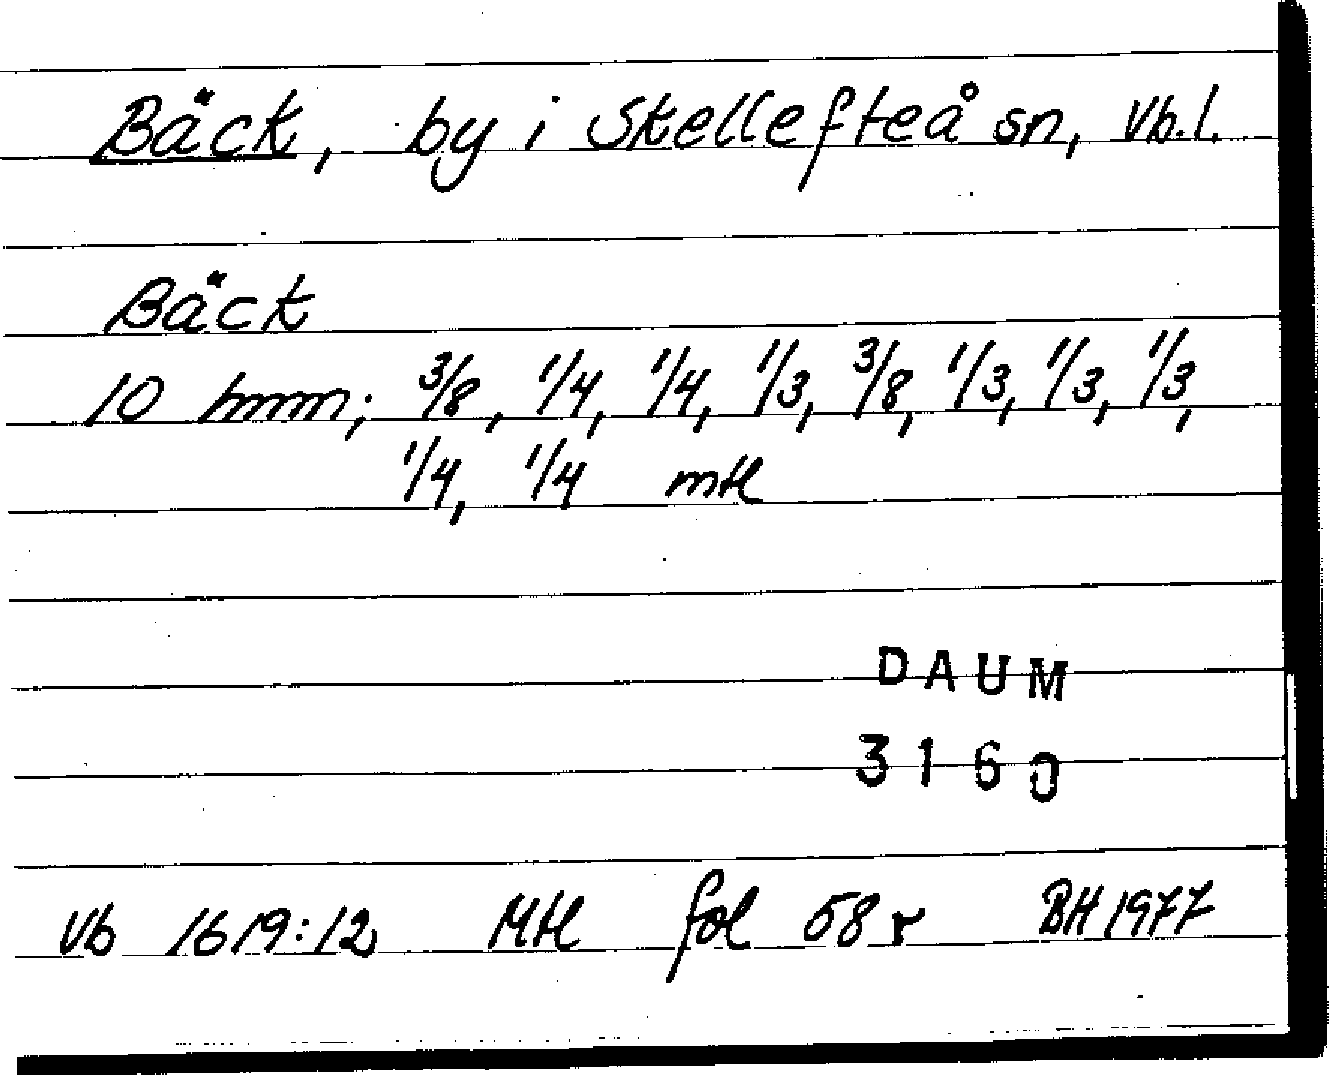 Bäck, by i Skellefteå sn, Vb.l.
Bäck
10 hmn; 3/8, 1/4, 1/4, 1/3, 3/8, 1/3, 1/3, 1/3,
1/4, 1/4 mtl
DAUM
3160
Vb 1619:12 Mtl fol 58 r BH 1977